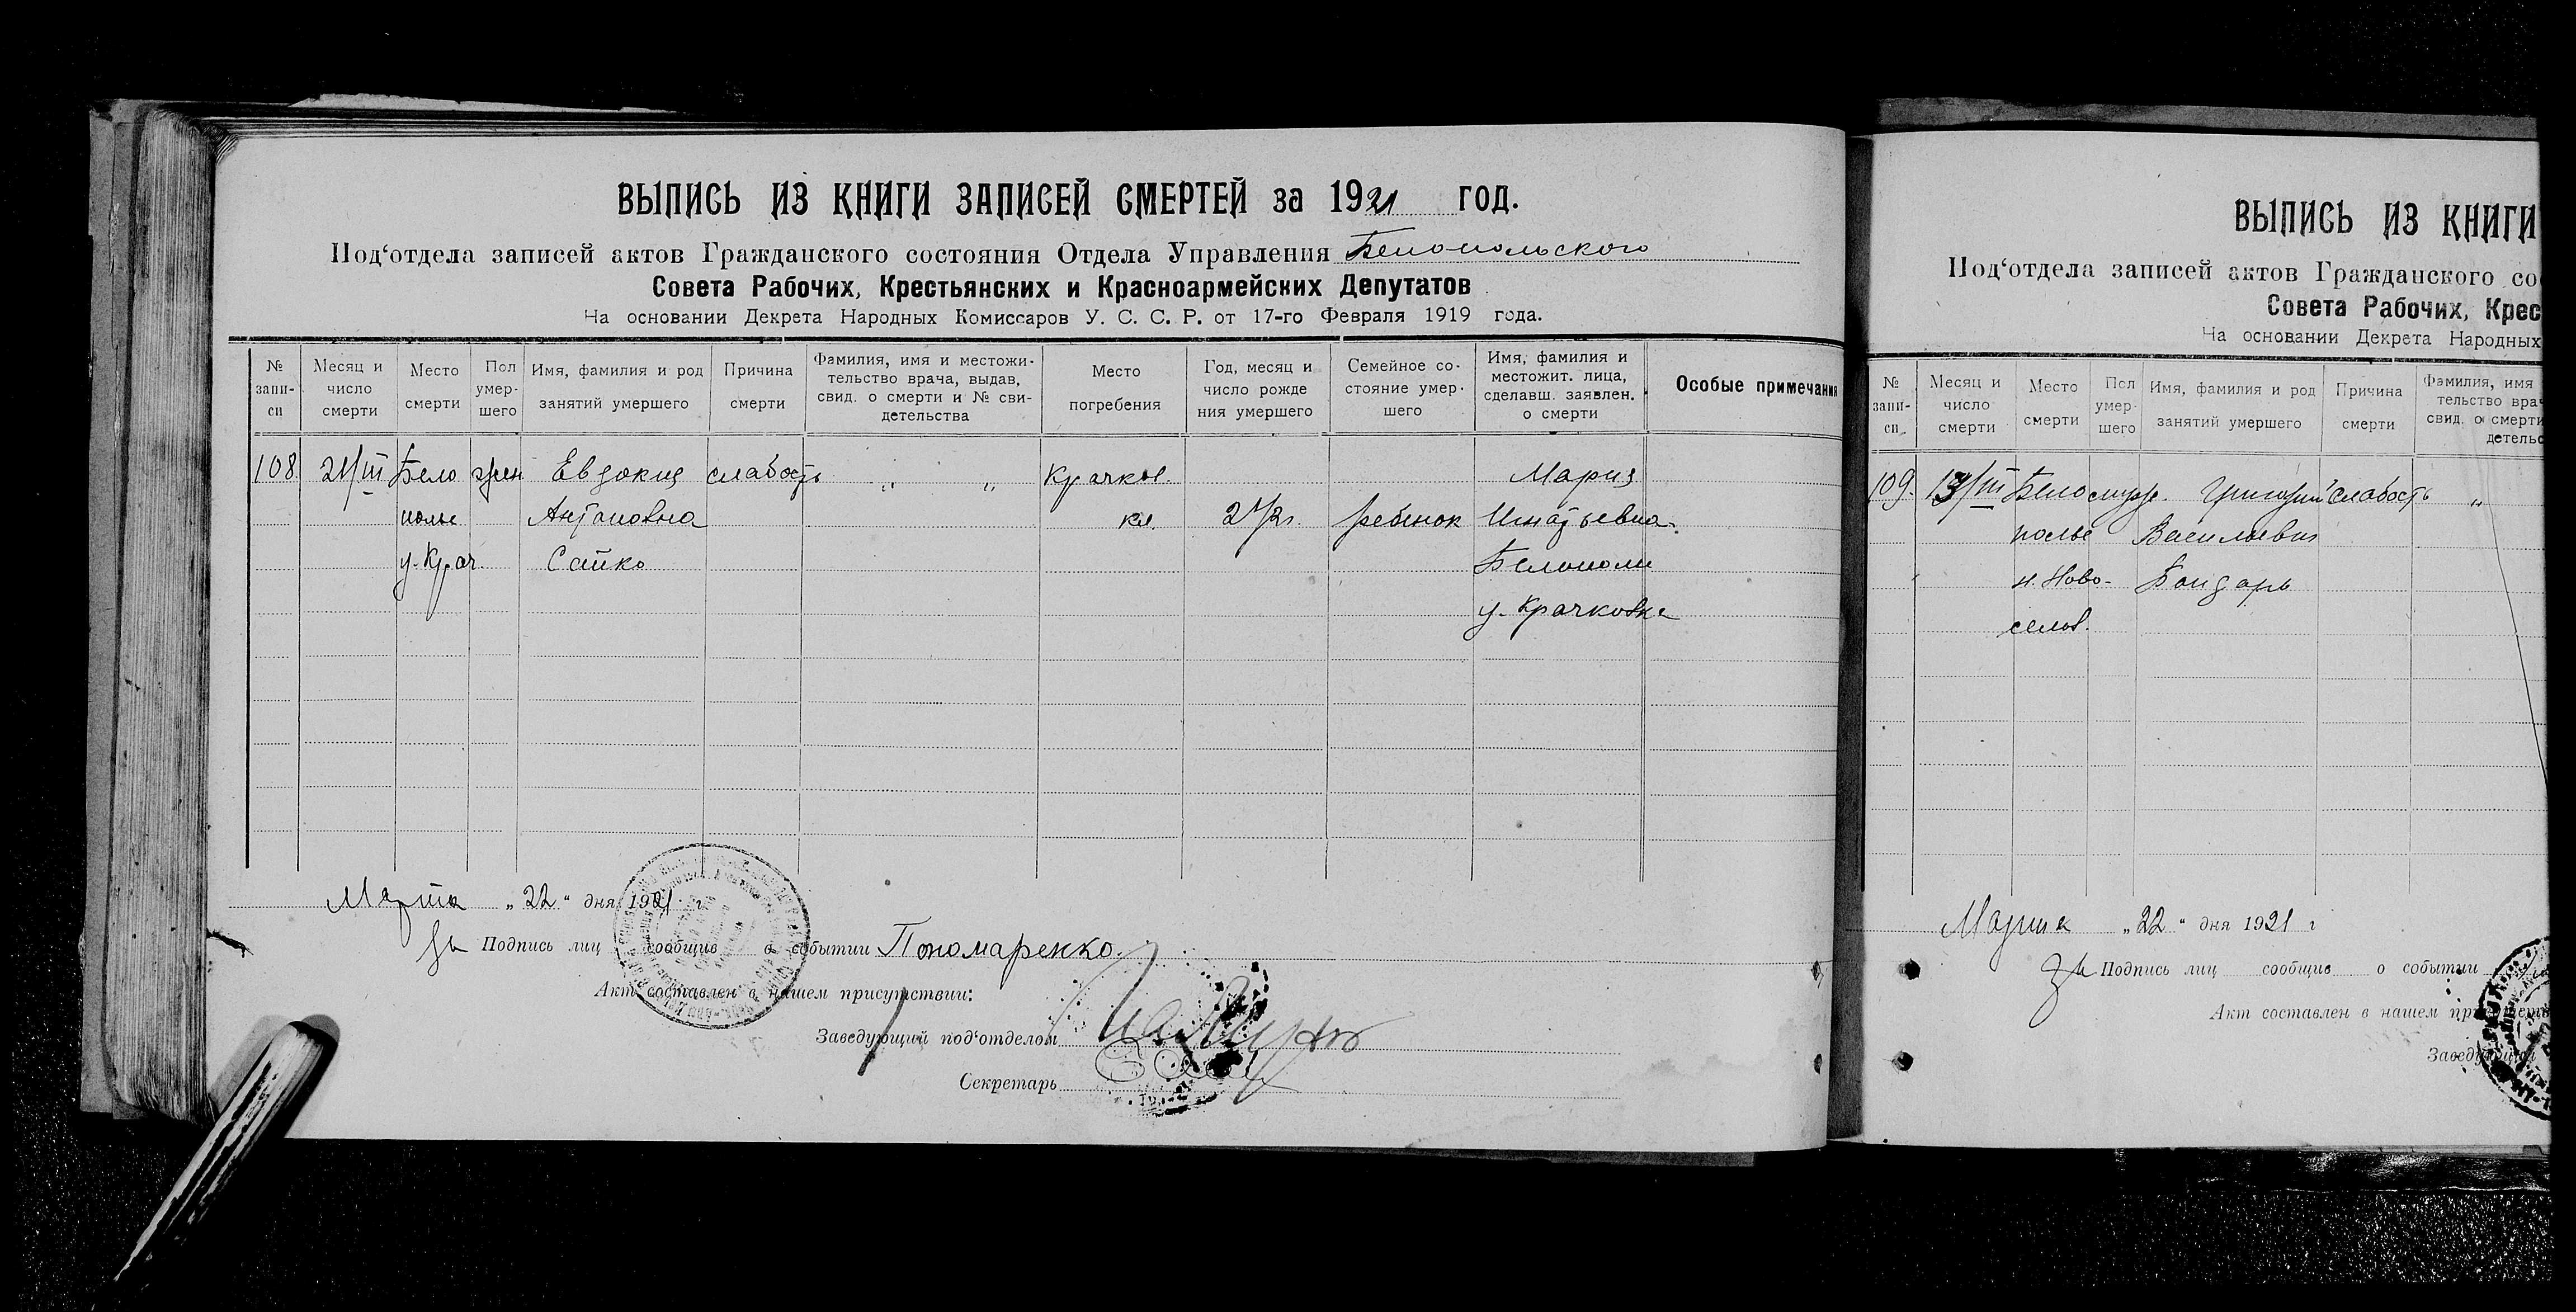 ВЫПИСЬ ИЗ КНИГИ ЗАПИСЕЙ СМЕРТЕЙ за 1921 год.
Под‘отдела записей актов Гражданского состояния Отдела Управления Белопольского
Совета Рабочих, Крестьянских и Красноармейских Депутатов
На основании Декрета Народных Комиссаров У. С. С. Р. от 17-го Февраля 1919 года.
№ запи-си
Месяц и число смерти
Место смерти
Пол умер-шего
Имя, фамилия и род занятий умершего
Причина смерти
Фамилия, имя и местожи-тельство врача, выдав, свид. о смерти и № сви-детельства
Место погребения
Год, месяц и число рожде ния умершего
Семейное со-стояние умер-шего
Имя, фамилия и местожит. лица, сделавш. заявлен. о смерти
Особые примечания
108 21/III Бело жен Евдокия слабость „ „ Крачков. Мария
полье Антоновна кл. 2 1/2 г. ребенок Игнатьевна
у. Крач. Сайко Белополье
у. Крачковка
Марта „22“ дня 1921 г.
За Подпись лиц сообщив о событии Пономаренко.
Акт составлен в нашем присутствии:
Заведующий под‘отделом
Секретарь
ВЫПИСЬ ИЗ КНИГИ
Под‘отдела записей актов Гражданского со
Совета Рабочих, Крес
На основании Декрета Народных
№ запи-си
Месяц и число смерти
Место смерти
Пол умер-шего
Имя, фамилия и род занятий умершего
Причина смерти
Фамилия, имя
тельство врач
свид. о смерти
детельс
109. 13/III Бело муж. Григорий слабость „
полье Васильевич
н. Ново- Бондарь
селов.
Марта „22“ дня 1921 г
За Подпись лиц сообщив о событии
Акт составлен в нашем присутств
Заведующий